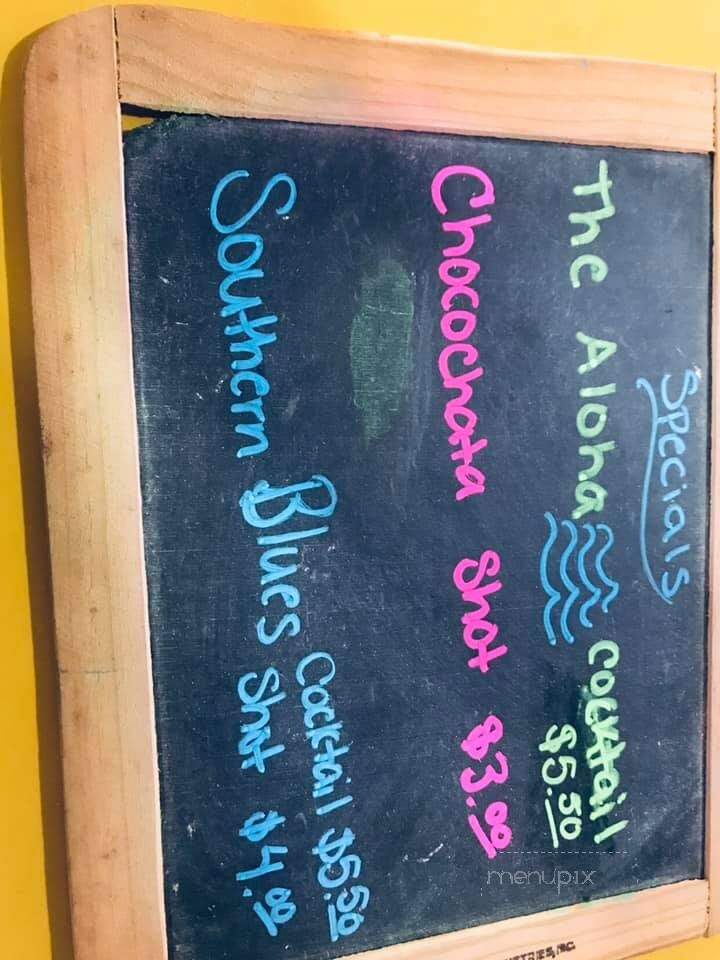 Specials
The Aloha Cocktail
$5.50
Chocochata Shot $3.00
Cocktail $5.50
Southern Blues Shot $4.00
menupix